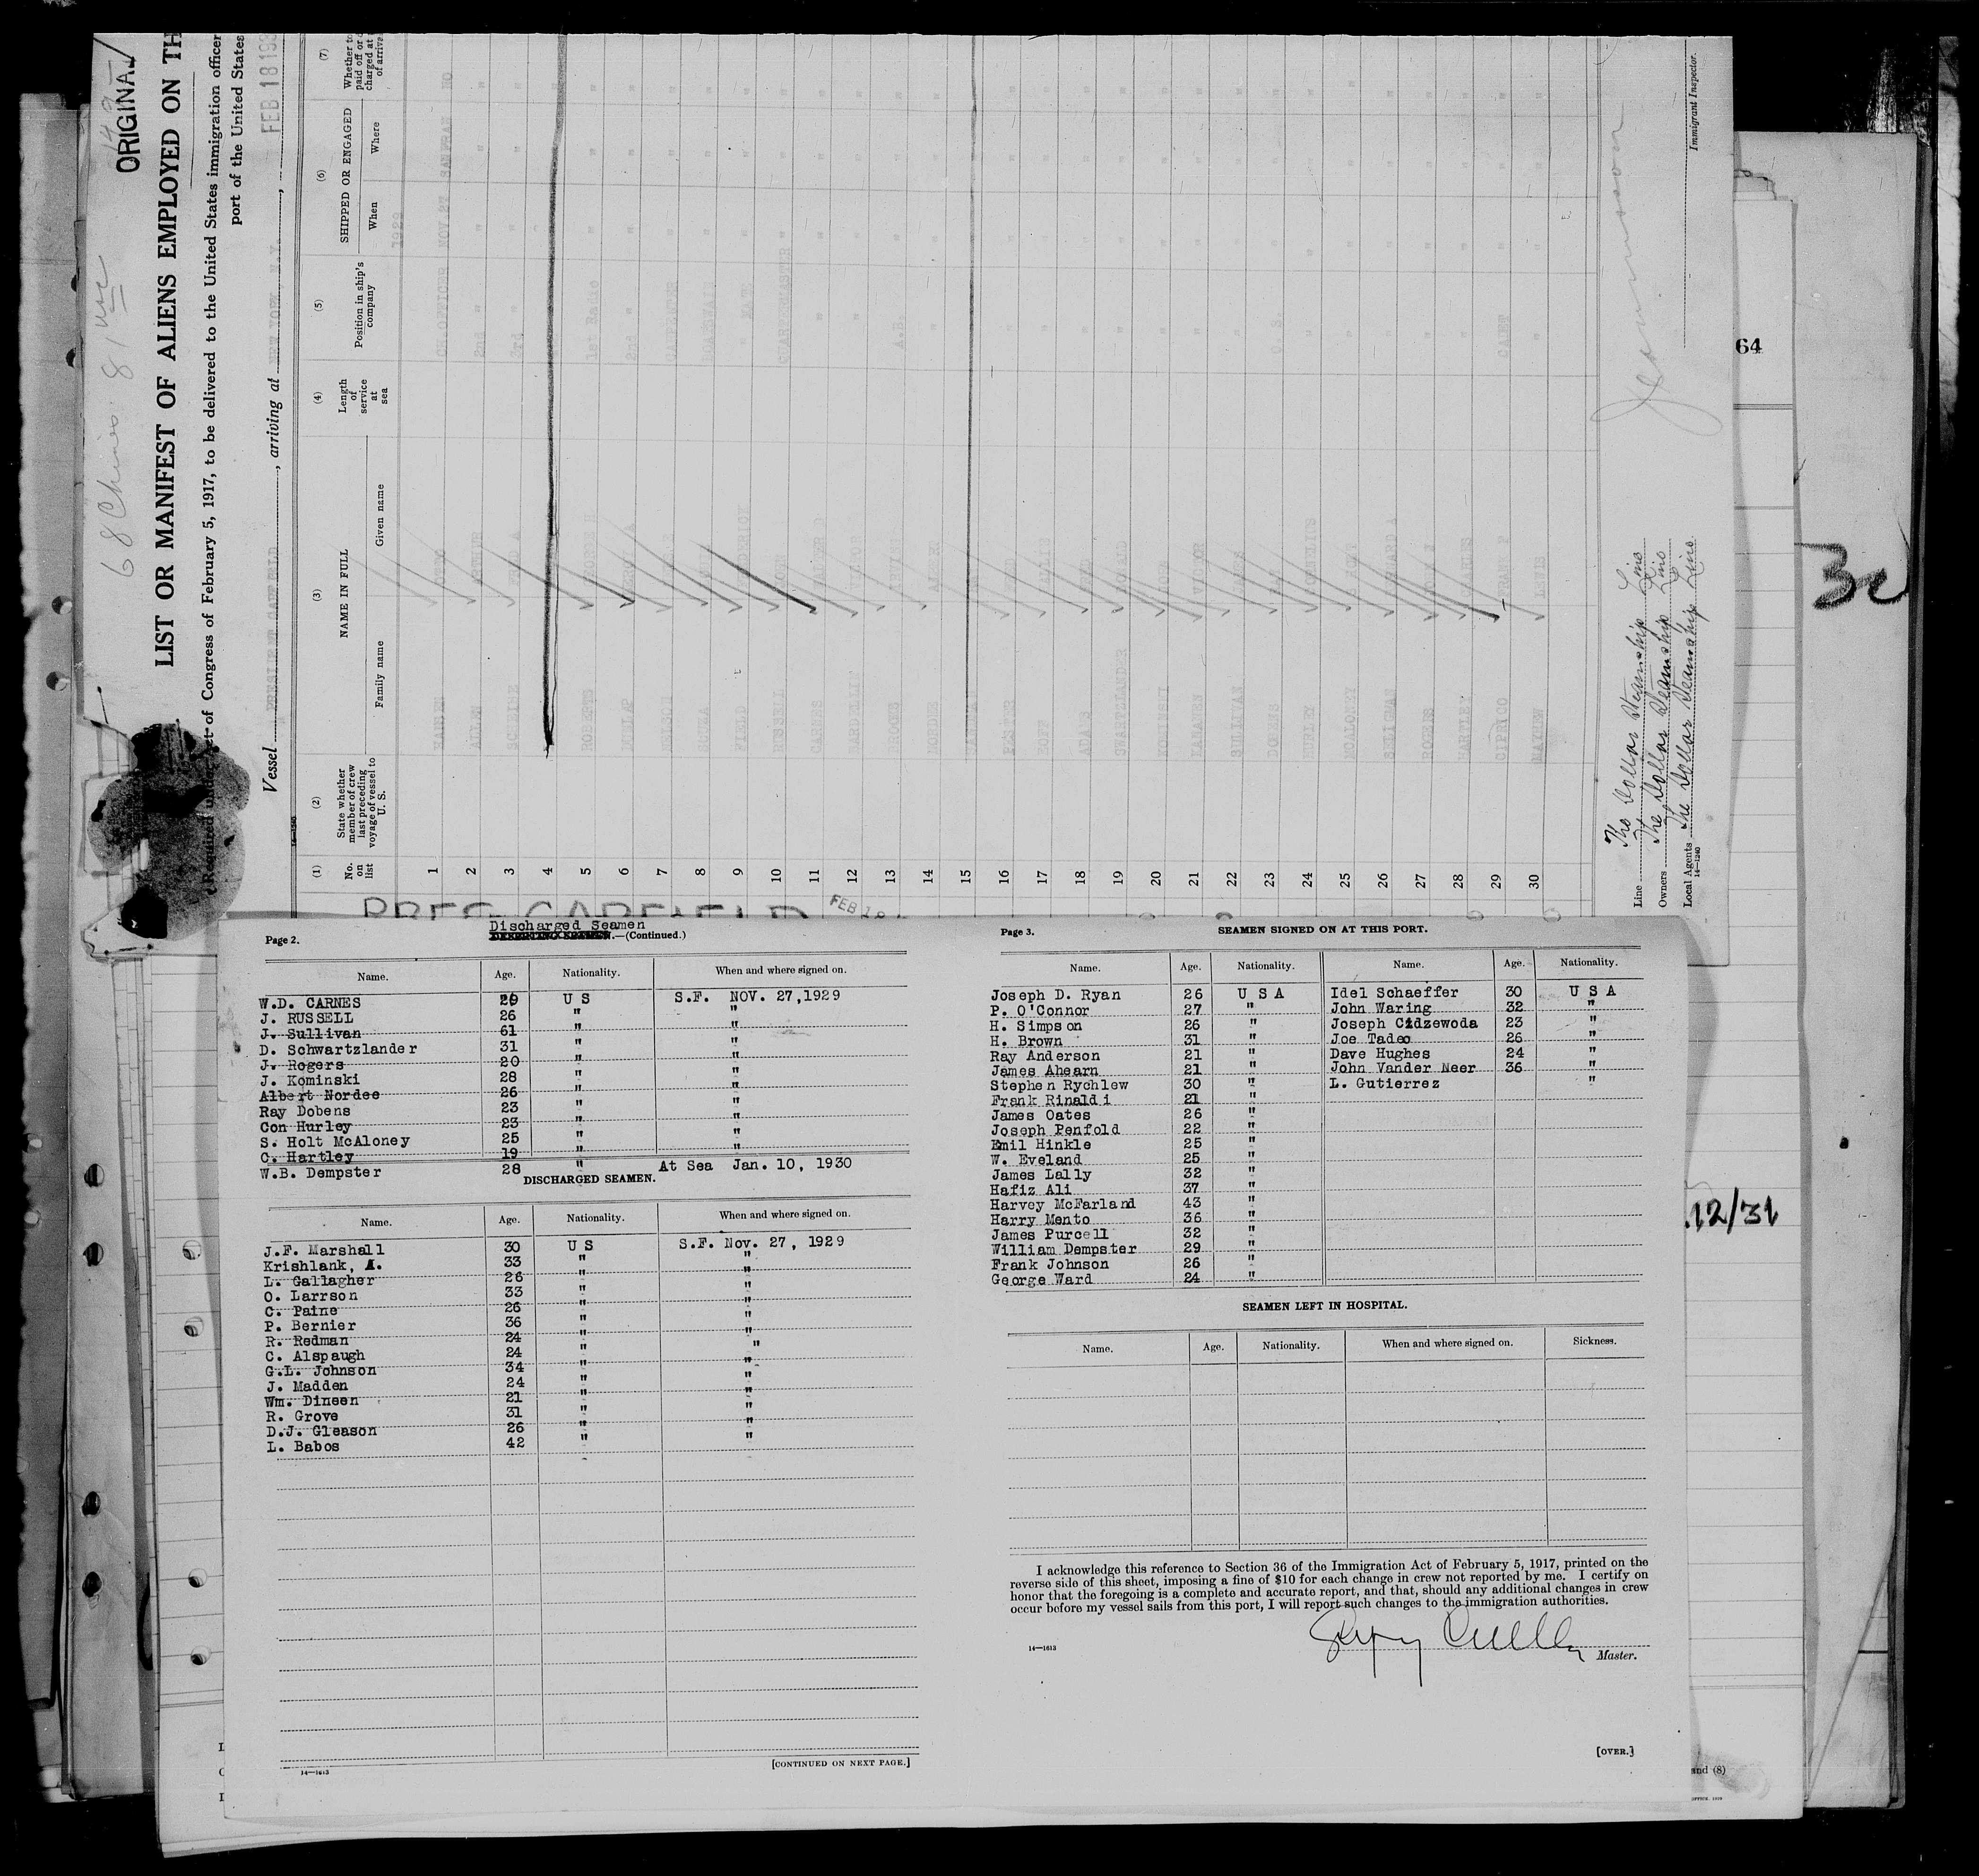 ORIGINAL
68 Chinese 81
LIST OR MANIFEST OF ALIENS EMPLOYED ON TH
(Required under Act of Congress of February 5, 1917, to be delivered to the United States immigration officer
port of the United States
Vessel PRESIDENT GARFIELD, arriving at NEW YORK, N.Y.,
FEB 18 193
(1) (2) (3) (4) (5) (6) (7)
No. on list
State whether member of crew last preceding voyage of vessel to U. S.
NAME IN FULL
Family name Given name
Length of service at sea
Position in ship's company
SHIPPED OR ENGAGED
When Where
Whether to paid off or charged at of arriva
1929
1 CH. OFFICER NOV. 27 SAN FRAN NO
2 ALLEN ARTHUR 2nd " " " "
3 3rd " " " "
4
5 ROBERTS GEORGE H 1st Radio " " "
6 DUNLAP 2nd " " " "
7 CARPENTER " " "
8 " " "
9 FIELD FREDERICK " " " "
10 RUSSELL " " "
11 " " " "
12 " " " "
13 A.B. " " "
14 ALBERT " " " "
15
16 " " " "
17 HOFF " " " "
18 ADAMS " " " "
19 " " " "
20 KOMINSKI " " " "
21 " " " "
22 SULLIVAN " " " "
23 DOBENS O. S. " " "
24 HURLEY CORNELIUS " " " "
25 MCALONEY " " " "
26 " " " "
27 ROGERS " " " "
28 HARTLEY CHARLES " " " "
29 FRANK P CADET " " "
30 " " " "
Line The Dollar Steamship Line
Owners The Dollar Steamship Line
Local Agents The Dollar Steamship Line
14—1240
Immigrant Inspector.
PRES GARFIELD
FEB 18
64
3c
.12/31
Page 2.
Discharged Seamen
DESERTING SEAMEN.—(Continued.)
Name. Age. Nationality. When and where signed on.
W.D. CARNES 29 U S S.F. NOV. 27,1929
J. RUSSELL 26 " "
J. Sullivan 61 " "
D. Schwartzlander 31 " "
J. Rogers 20 " "
J. Kominski 28 " "
Albert Nordee 26 " "
Ray Dobens 23 " "
Con Hurley 23 " "
S. Holt McAloney 25 " "
C. Hartley 19 " "
W.B. Dempster 28 " At Sea Jan. 10, 1930
DISCHARGED SEAMEN.
Name. Age. Nationality. When and where signed on.
J.F. Marshall 30 U S S.F. Nov. 27, 1929
Krishlank, A. 33 " "
L. Gallagher 26 " "
O. Larrson 33 " "
C. Paine 26 " "
P. Bernier 36 " "
R. Redman 24 " "
C. Alspaugh 24 " "
G.L. Johnson 34 " "
J. Madden 24 " "
Wm. Dineen 21 " "
R. Grove 31 " "
D.J. Gleason 26 " "
L. Babos 42 " "
[CONTINUED ON NEXT PAGE.]
14—1613
Page 3.
SEAMEN SIGNED ON AT THIS PORT.
Name. Age. Nationality. Name. Age. Nationality.
Joseph D. Ryan 26 U S A Idel Schaeffer 30 U S A
P. O'Connor 27 " John Waring 32 "
H. Simpson 26 " Joseph Cidzewoda 23 "
H. Brown 31 " Joe Tadeo 26 "
Ray Anderson 21 " Dave Hughes 24 "
James Ahearn 21 " John Vander Meer 36 "
Stephen Rychlew 30 " L. Gutierrez "
Frank Rinaldi 21 "
James Oates 26 "
Joseph Penfold 22 "
Emil Hinkle 25 "
W. Eveland 25 "
James Lally 32 "
Hafiz Ali 37 "
Harvey McFarland 43 "
Harry Mento 36 "
James Purcell 32 "
William Dempster 29 "
Frank Johnson 26 "
George Ward 24 "
SEAMEN LEFT IN HOSPITAL.
Name. Age. Nationality. When and where signed on. Sickness.
I acknowledge this reference to Section 36 of the Immigration Act of February 5, 1917, printed on the
reverse side of this sheet, imposing a fine of $10 for each change in crew not reported by me. I certify on
honor that the foregoing is a complete and accurate report, and that, should any additional changes in crew
occur before my vessel sails from this port, I will report such changes to the immigration authorities.
14—1613
Master.
[OVER.]
and (8)